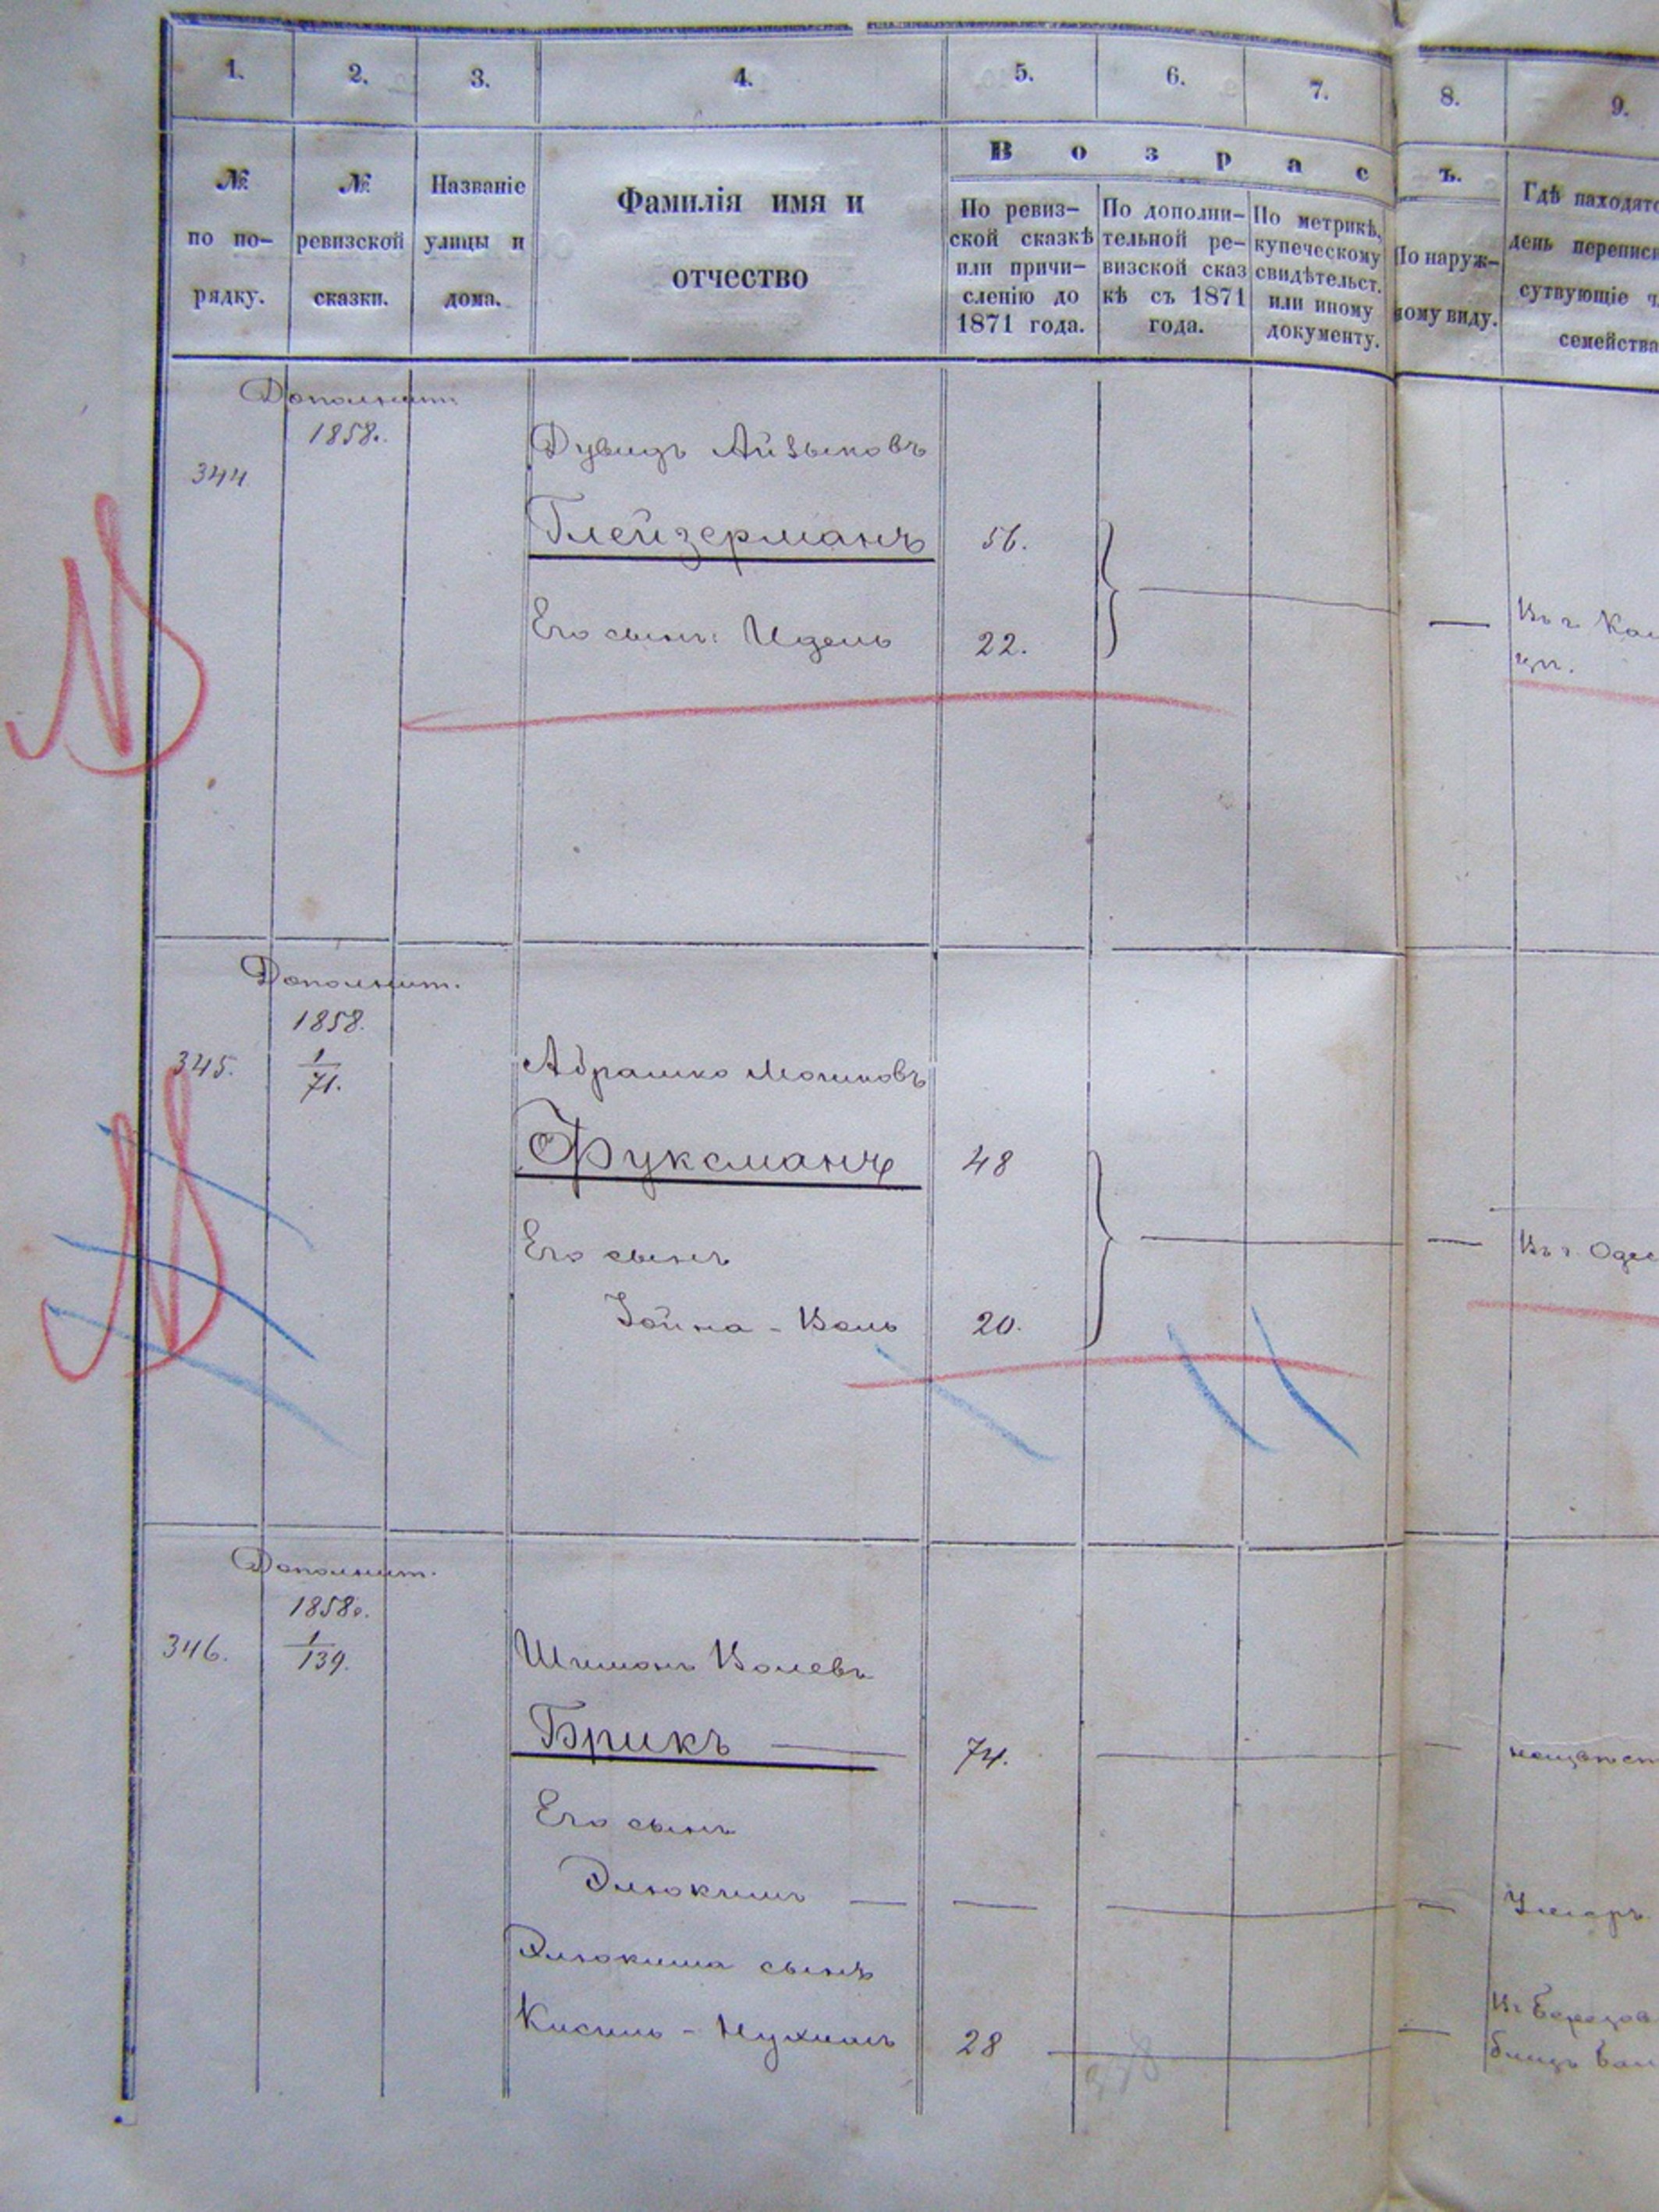 1. 2. 3. 4. 5. 6. 7. 8. 9.
В о з р а с ъ.
№ по по- рядку.
№ ревизской сказки.
Названіе улицы и дома.
Фамилія имя и
отчество
По ревиз-
ской сказкѣ
или причи-
сленію до
1871 года.
По дополни-
тельной ре-
визской сказ
кѣ съ 1871
года.
По метрикѣ,
купеческому
свидѣтельст.
или иному
документу.
По наруж-
ному виду.
Гдѣ находятс
день переписи
сутвующіе ч
семейства
Дополнит.
1858г.
344
Дувидъ Айзыковъ
Глейзерманъ 56.
Его сынъ: Идель 22.
Въ г. Кам
Дополнит.
1858.
345. 1/71.
Абрашко Мошковъ
Фуксманъ 48
Его сынъ
Іойна - Воль 20.
Въ г. Одес
Дополнит.
1858г.
346. 1/139.
Шимонъ Волевъ
Брикъ — 74.
неизвѣст
Его сынъ
Элюкимъ — —
Умеръ
Элюкима сынъ
Кисиль - Нухимъ 28